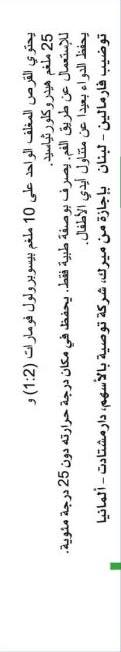 يحتوي القرص المغلف الواحد على 10 ملغم بيسوبرولول فومارات (1:2) و
25 ملغم هيدروكلورثيازيد.
للإستعمال عن طريق الفم. يصرف بوصفة طبية فقط. يحفظ في مكان درجة حرارته دون 25 درجة مئوية.
يحفظ الدواء بعيدا عن متناول أيدي الأطفال.
توضيب فارمالين - لبنان بإجازة من ميرك، شركة توصية بالأسهم، دارمشتادت - ألمانيا